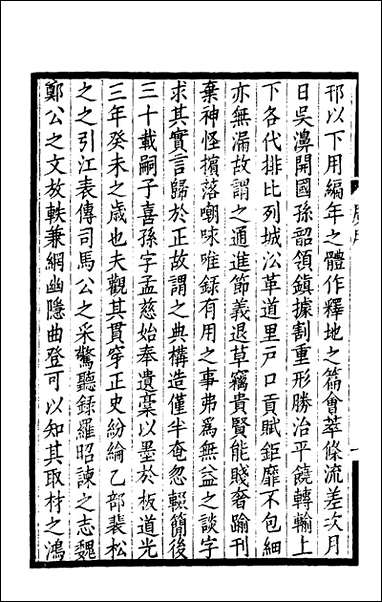 邗以下用編年之體作釋地之篇會萃條流差次月
日吳濞開國孫韶領鎮據割重形勝治平饒轉輸上
下各代排比列城沿革道里戶口貢賦鉅靡不包細
亦無漏故謂之通進節義退草竊貴賢能賤奢踰刊
棄神怪擯落嘲昧唯錄有用之事弗爲無益之談字
求其實言歸於正故謂之典構造僅半奄忽輟簡後
三十載嗣子喜孫字孟慈始奉遺稾以墨於板道光
三年癸未之歲也夫觀其貫穿正史紛綸乙部裴松
之之引江表傳司馬公之采驚聽錄羅昭諫之志魏
鄭公之文放軼兼網幽隱曲登可以知其取材之鴻